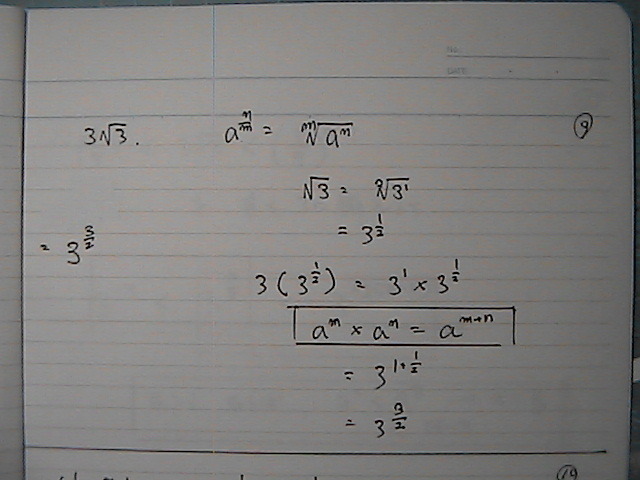 No.
DATE
3√3. a^(n/m) = ᵐ√(aⁿ) ⑨
√3 = ²√(3¹)
= 3^(1/2)
= 3^(3/2)
3 (3^(1/2)) = 3¹ × 3^(1/2)
aᵐ × aⁿ = a^(m+n)
= 3^(1+1/2)
= 3^(3/2)